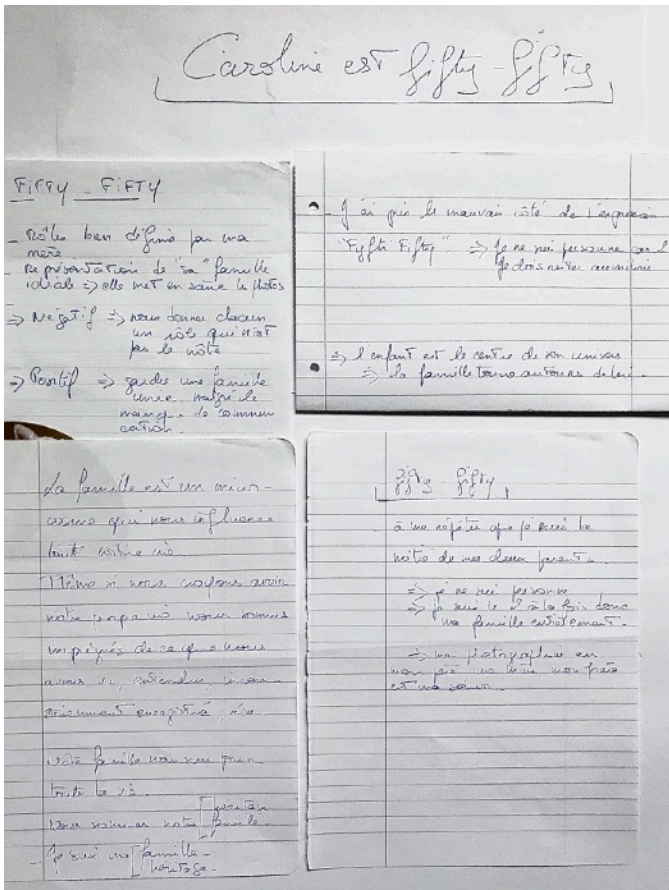 Caroline est fifty-fifty
FIFTY - FIFTY
- Rôles bien définis par ma
mère
- Représentation de "sa" famille
idéale => elle met en scène les photos
=> Négatif => nous donner chacun
un rôle qui n'est
pas le nôtre
=> Positif => garder une famille
unie malgré le
manque de commun
cation.
- J'ai pris le mauvais côté de l'expression
"Fyfti Fifty" => Je ne suis personne
Je dois
=> L'enfant est le centre de son univers
=> la famille tourne autour de lui.
La famille est un micro-
cosme qui nous influence
tout notre vie.
Même si nous croyons avoir
notre propre vie nous sommes
imprégnés de ce que nous
avons vu, entendu, incons-
ciemment enregistré,
Notre famille nous suit pour
toute la vie.
Nous sommes notre
famille.
- Je suis ma [famille-
héritage.
fifty - fifty
à me répéter que je suis la
moitié de mes deux parents.
=> je ne suis personne
=> je suis les 2 à la fois donc
ma famille entièrement.
=> me photographier en
mon père, ma mère mon frère
et ma sœur.